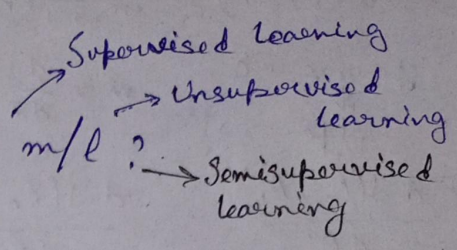 Supervised learning
Unsupervised
learning
m/l ?
Semisupervised
learning